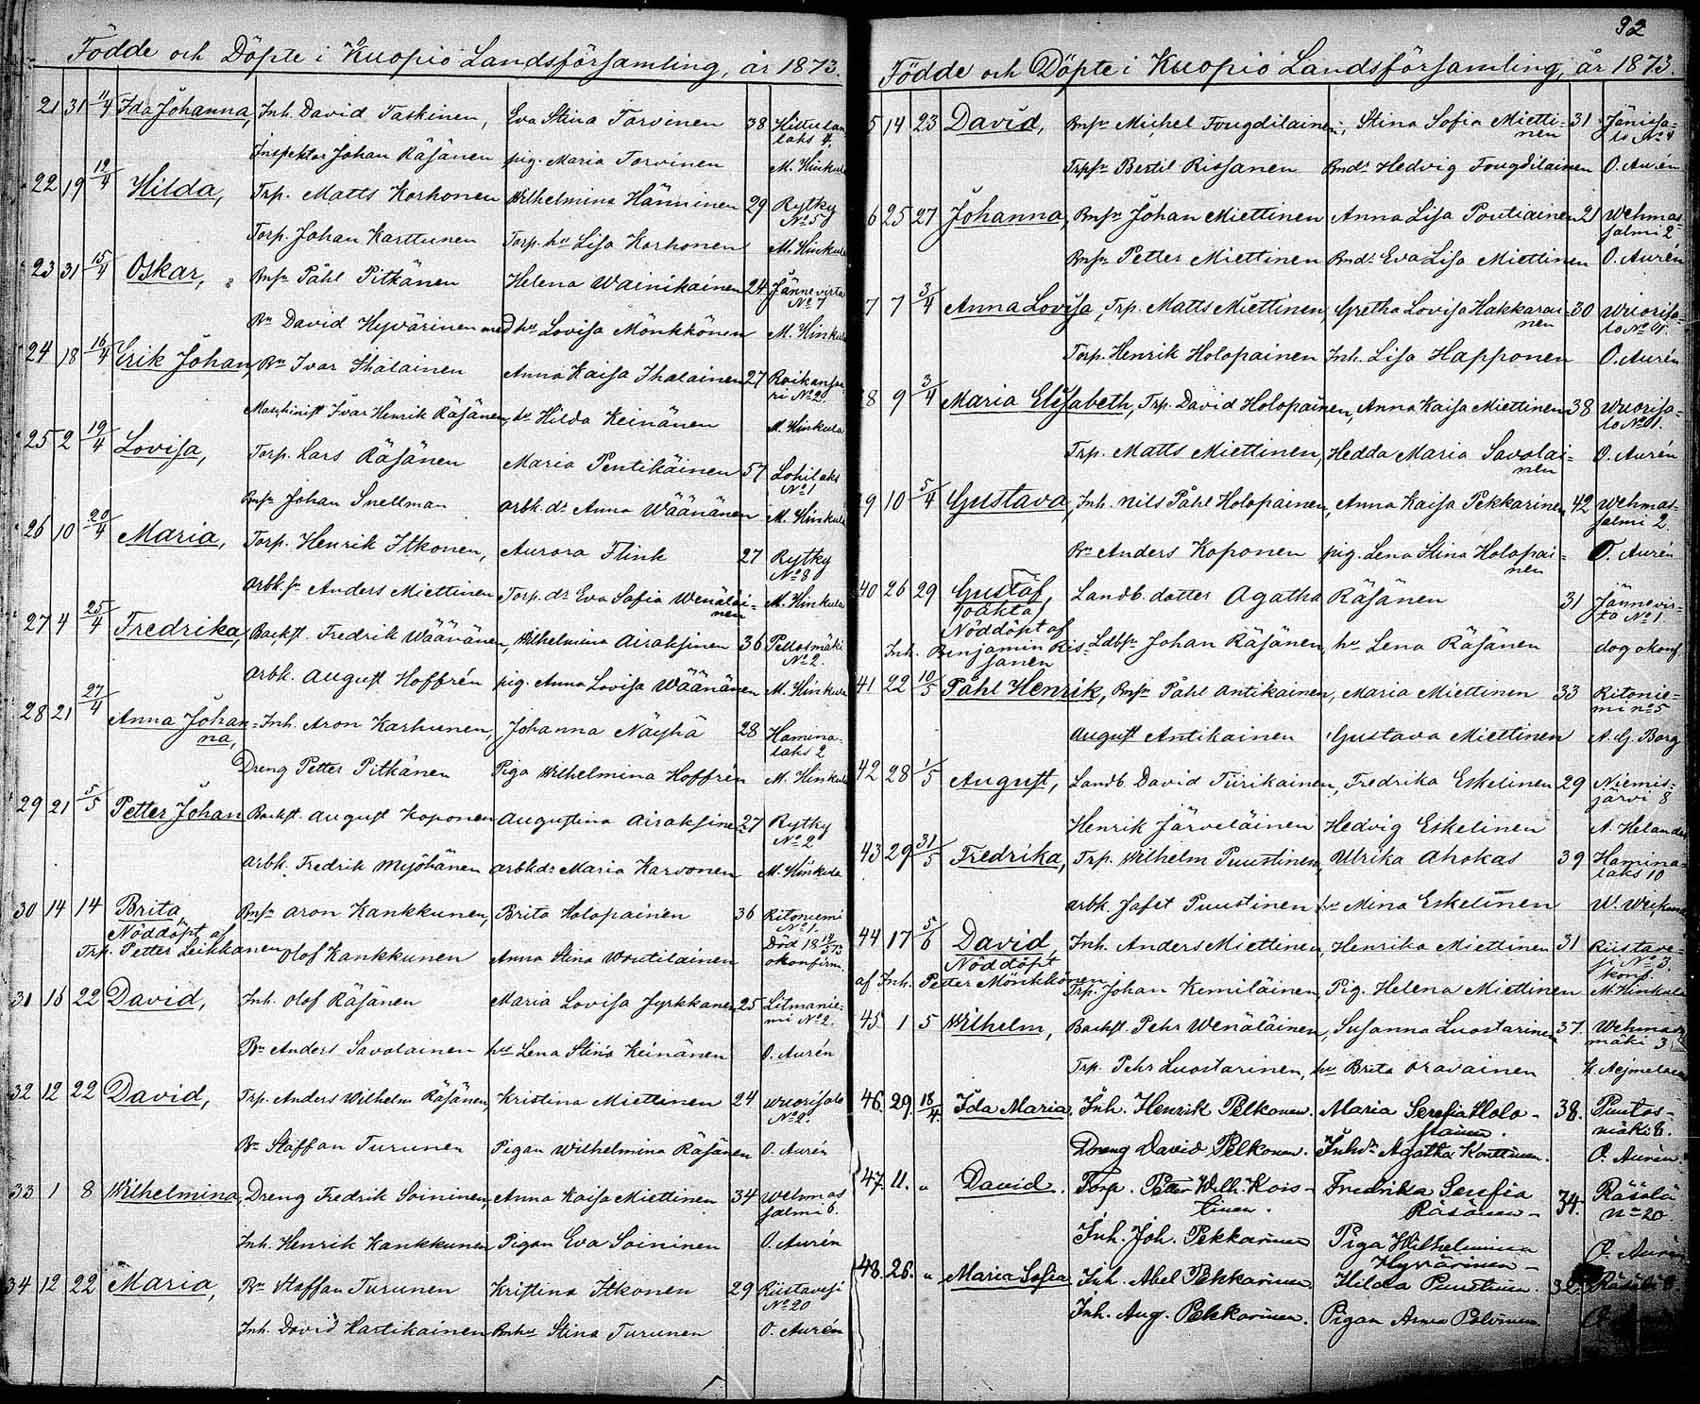 Födde och Döpte i Kuopio Landsförsamling, år 1873.
21 31 11/4 Ida Johanna, Inh. David Taskinen, Eva Stina Tarvinen 38
laks 4.
Inspektor Johan Räsänen pig. Maria Tarvinen M. Hinkula
22 19 12/4 Hilda, Trp. Matts Korhonen Wilhelmina Hänninen 29 Rytky
No 5
Torp. Johan Karttunen Torp. hu Lisa Korhonen M. Hinkula
23 31 15/4 Oskar, Bnsn Påhl Pitkänen Helena Wainikainen 24 Jännevirta
No 7
Bn David Hyvärinen med hu Lovisa Mönkkönen M. Hinkula
24 18 16/4 Erik Johan, Bn Ivar Ihalainen Anna Kaisa Ihalainen 27
ri No 2.
Maschinist Ivar Henrik Räsänen, dr Hilda Keinänen M. Hinkula
25 2 19/4 Lovisa, Torp. Lars Räsänen Maria Pentikäinen 37 Lohilaks
No 1
Bnsn Johan Snellman arbk. dr Anna Wäänänen M. Hinkula
26 10 20/4 Maria, Torp. Henrik Itkonen, Aurora Flink 27 Rytky
No 8
arbk. sn Anders Miettinen Torp. dr Eva Sofia Wenäläi-
nen M. Hinkula
27 4 25/4 Fredrika, Backst. Fredrik Wäänänen, Wilhelmina Airaksinen 36 Pellosmäki
No 2.
arbk. August Hoffrén pig. Anna Lovisa Wäänänen M. Hinkula
28 21 27/4 Anna Johan- Inh. Aron Karhunen, Johanna Näyhä 28 Hamina-
na, laks 2
Dreng Petter Pitkänen Piga Wilhelmina Hoffrén M. Hinkula
29 21 5/5 Petter Johan Backst. August Koponen Augustina Airaksinen 27 Rytky
No 2
arbk. Fredrik Myöhänen arbkdr Maria Karvonen M. Hinkula
30 14 14 Brita, Bnsn Aron Kankkunen, Brita Holopainen 36 Ritoniemi
No 1.
Nöddöpt af Död
Trp. Petter Leikkanen Olof Kankkunen Anna Stina Woutilainen okonfirm.
31 16 22 David, Inh. Olof Räsänen Maria Lovisa Jyrkkänen 25 Litmanie-
mi No 2.
Bn Anders Savolainen hu Lena Stina Keinänen O. Aurén
32 12 22 David, Trp. Anders Wilhelm Räsänen, Kristina Miettinen 24 Wuorisalo
No 2.
Bn Staffan Turunen Pigan Wilhelmina Räsänen O. Aurén
33 1 8 Wilhelmina, Dreng Fredrik Soininen, Anna Kaisa Miettinen 34 Wehmas
salmi 6.
Inh. Henrik Kankkunen Pigan Eva Soininen O. Aurén
34 12 22 Maria, Bn Staffan Turunen Kristina Itkonen 29 Riistavesi
No 20
Inh. David Hartikainen Bnhu Stina Turunen O. Aurén
92
Födde och Döpte i Kuopio Landsförsamling, år 1873.
5 14 23 David, Bnsn Michel Fougdilainen, Stina Sofia Mietti-
nen 31 Jänissa-
lo No 4
Trpsn Bertil Rissanen Bndr Hedvig Fougdilainen O. Aurén
6 25 27 Johanna, Bnsn Johan Miettinen Anna Lisa Poutiainen 21 Wehmas-
salmi 2
Bnsn Petter Miettinen Bndr Eva Lisa Miettinen O. Aurén
7 7 3/4 Anna Lovisa, Trp. Matts Miettinen, Gretha Lovisa Hakkarai-
nen 30 Wuorisa-
lo No 4.
Torp. Henrik Holopainen Inh. Lisa Happonen O. Aurén
8 9 3/4 Maria Elisabeth, Trp. David Holopainen, Anna Kaisa Miettinen 38 Wuorisa-
lo No 1.
Trp. Matts Miettinen, Hedda Maria Savolai-
nen O. Aurén
9 10 5/4 Gustava, Inh. Nils Påhl Holopainen, Anna Kaisa Pekkarinen 42 Wehmas-
salmi 2.
Bn Anders Koponen pig. Lena Stina Holopai-
nen O. Aurén
40 26 29 Gustaf, Landb. dotter Agatha Räsänen 31 Jännevir-
ta No 1.
oäkta
Nöddöpt af
Inh. Benjamin Ris-
sanen Ldbsn Johan Räsänen, hu Lena Räsänen dog okonf.
41 22 10/5 Påhl Henrik, Bnsn Påhl Antikainen, Maria Miettinen 33 Ritonie-
mi no 5
August Antikainen Gustava Miettinen A. G. Borg
42 28 1/5 August, Landb. David Tiirikainen, Fredrika Eskelinen 29 Niemis-
järvi 8
Henrik Järveläinen Hedvig Eskelinen A. Helander
43 29 31/5 Fredrika, Trp. Wilhelm Puustinen, Ulrika Ahokas 39 Hamina-
laks 10
arbk. Jafet Puustinen hu Mina Eskelinen
44 17 5/6 David, Inh. Anders Miettinen, Henrika Miettinen 31 Riistave-
si No 3.
Nöddöpt konf.
af Inh. Petter Mönkkönen Trp. Johan Kemiläinen, Pig. Helena Miettinen M. Hinkula
45 1 5 Wilhelm, Backst. Pehr Wenäläinen, Susanna Luostarinen 37. Wehmas
mäki 3
Trp. Pehr Luostarinen, hu Brita Oravainen
46. 29. 18/4. Ida Maria. Inh. Henrik Pelkonen. Maria Serefia Holo-
painen. 38. Puutos-
mäki 6.
Dreng David Pelkonen. Inhdr Agatha Konttinen. O. Aurén.
47. 11. " David. Torp. Petter Wilh. Kois-
tinen. Fredrika Serefia
Räsänen 34. Räsälä
No 20
Inh. Joh. Pekkarinen Piga Wilhelmina
Hyvärinen O. Aurén
48. 26. " Maria Sofia Inh. Abel Pekkarinen. Hilda Puustinen. 32.
Inh. Aug. Pekkarinen. Pigan Anna